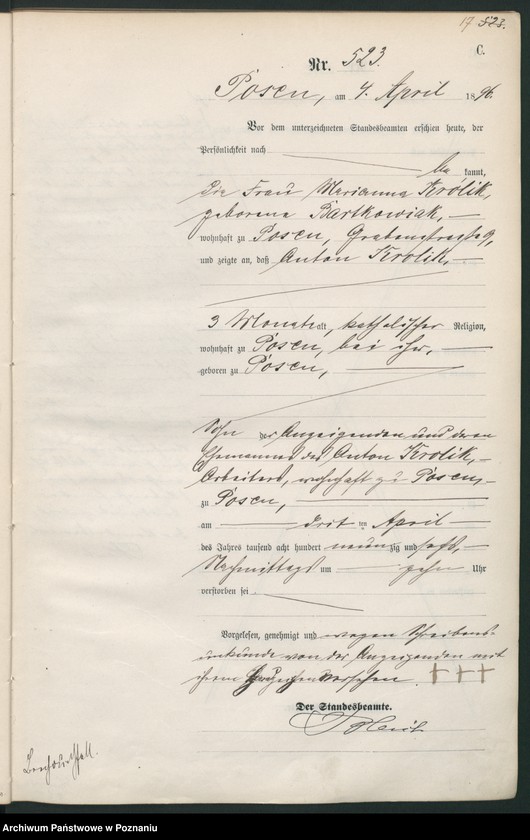 17 523.
C.
Nr. 523.
Posen, am 4. April 1896.
Vor dem unterzeichneten Standesbeamten erschien heute, der
Persönlichkeit nach
be kannt,
die Frau Marianna Królik,
geborene Bartkowiak,
wohnhaft zu Posen, Grabenstraße 9,
und zeigte an, daß Anton Krolik,
3 Monate alt, katholischer Religion,
wohnhaft zu Posen, bei ihr,
geboren zu Posen,
Sohn der Anzeigenden und deren
Ehemannes des Anton Krolik,
Arbeiters, wohnhaft zu Posen,
zu Posen,
am drit en April
des Jahres tausend acht hundert neunzig und sechs,
Nachmittags um zehn Uhr
verstorben sei.
Vorgelesen, genehmigt und wegen Schreibens-
unkunde von der Anzeigenden mit
ihrem Handzeichen versehen. +++
Der Standesbeamte.